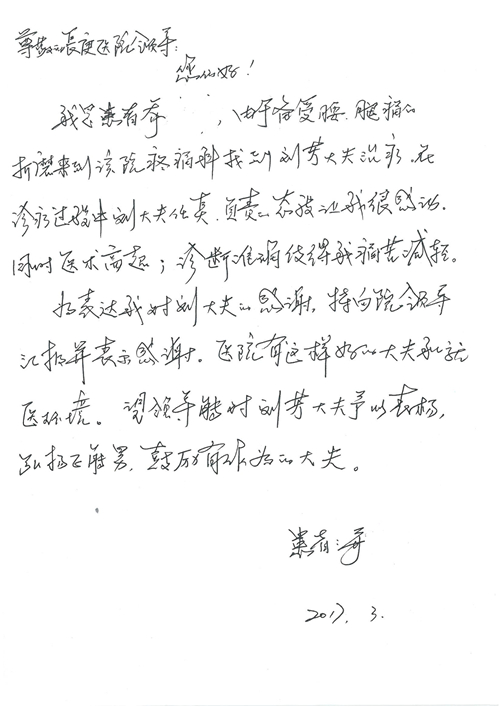 尊敬的长庚医院领导:
您们好!
我是患者李 ,由于备受腰、腿痛的
折磨来到该院疼痛科找到刘芳大夫治疗,在
诊疗过程中刘大夫认真、负责的态度让我很感动。
同时医术高超;诊断准确使得我痛苦减轻。
为表达我对刘大夫的感谢,特向院领导
汇报并表示感谢。医院有这样好的大夫和就
医环境。望领导能对刘芳大夫予以表扬,
弘扬正能量,鼓励有作为的大夫。
患者:李
2017.3.